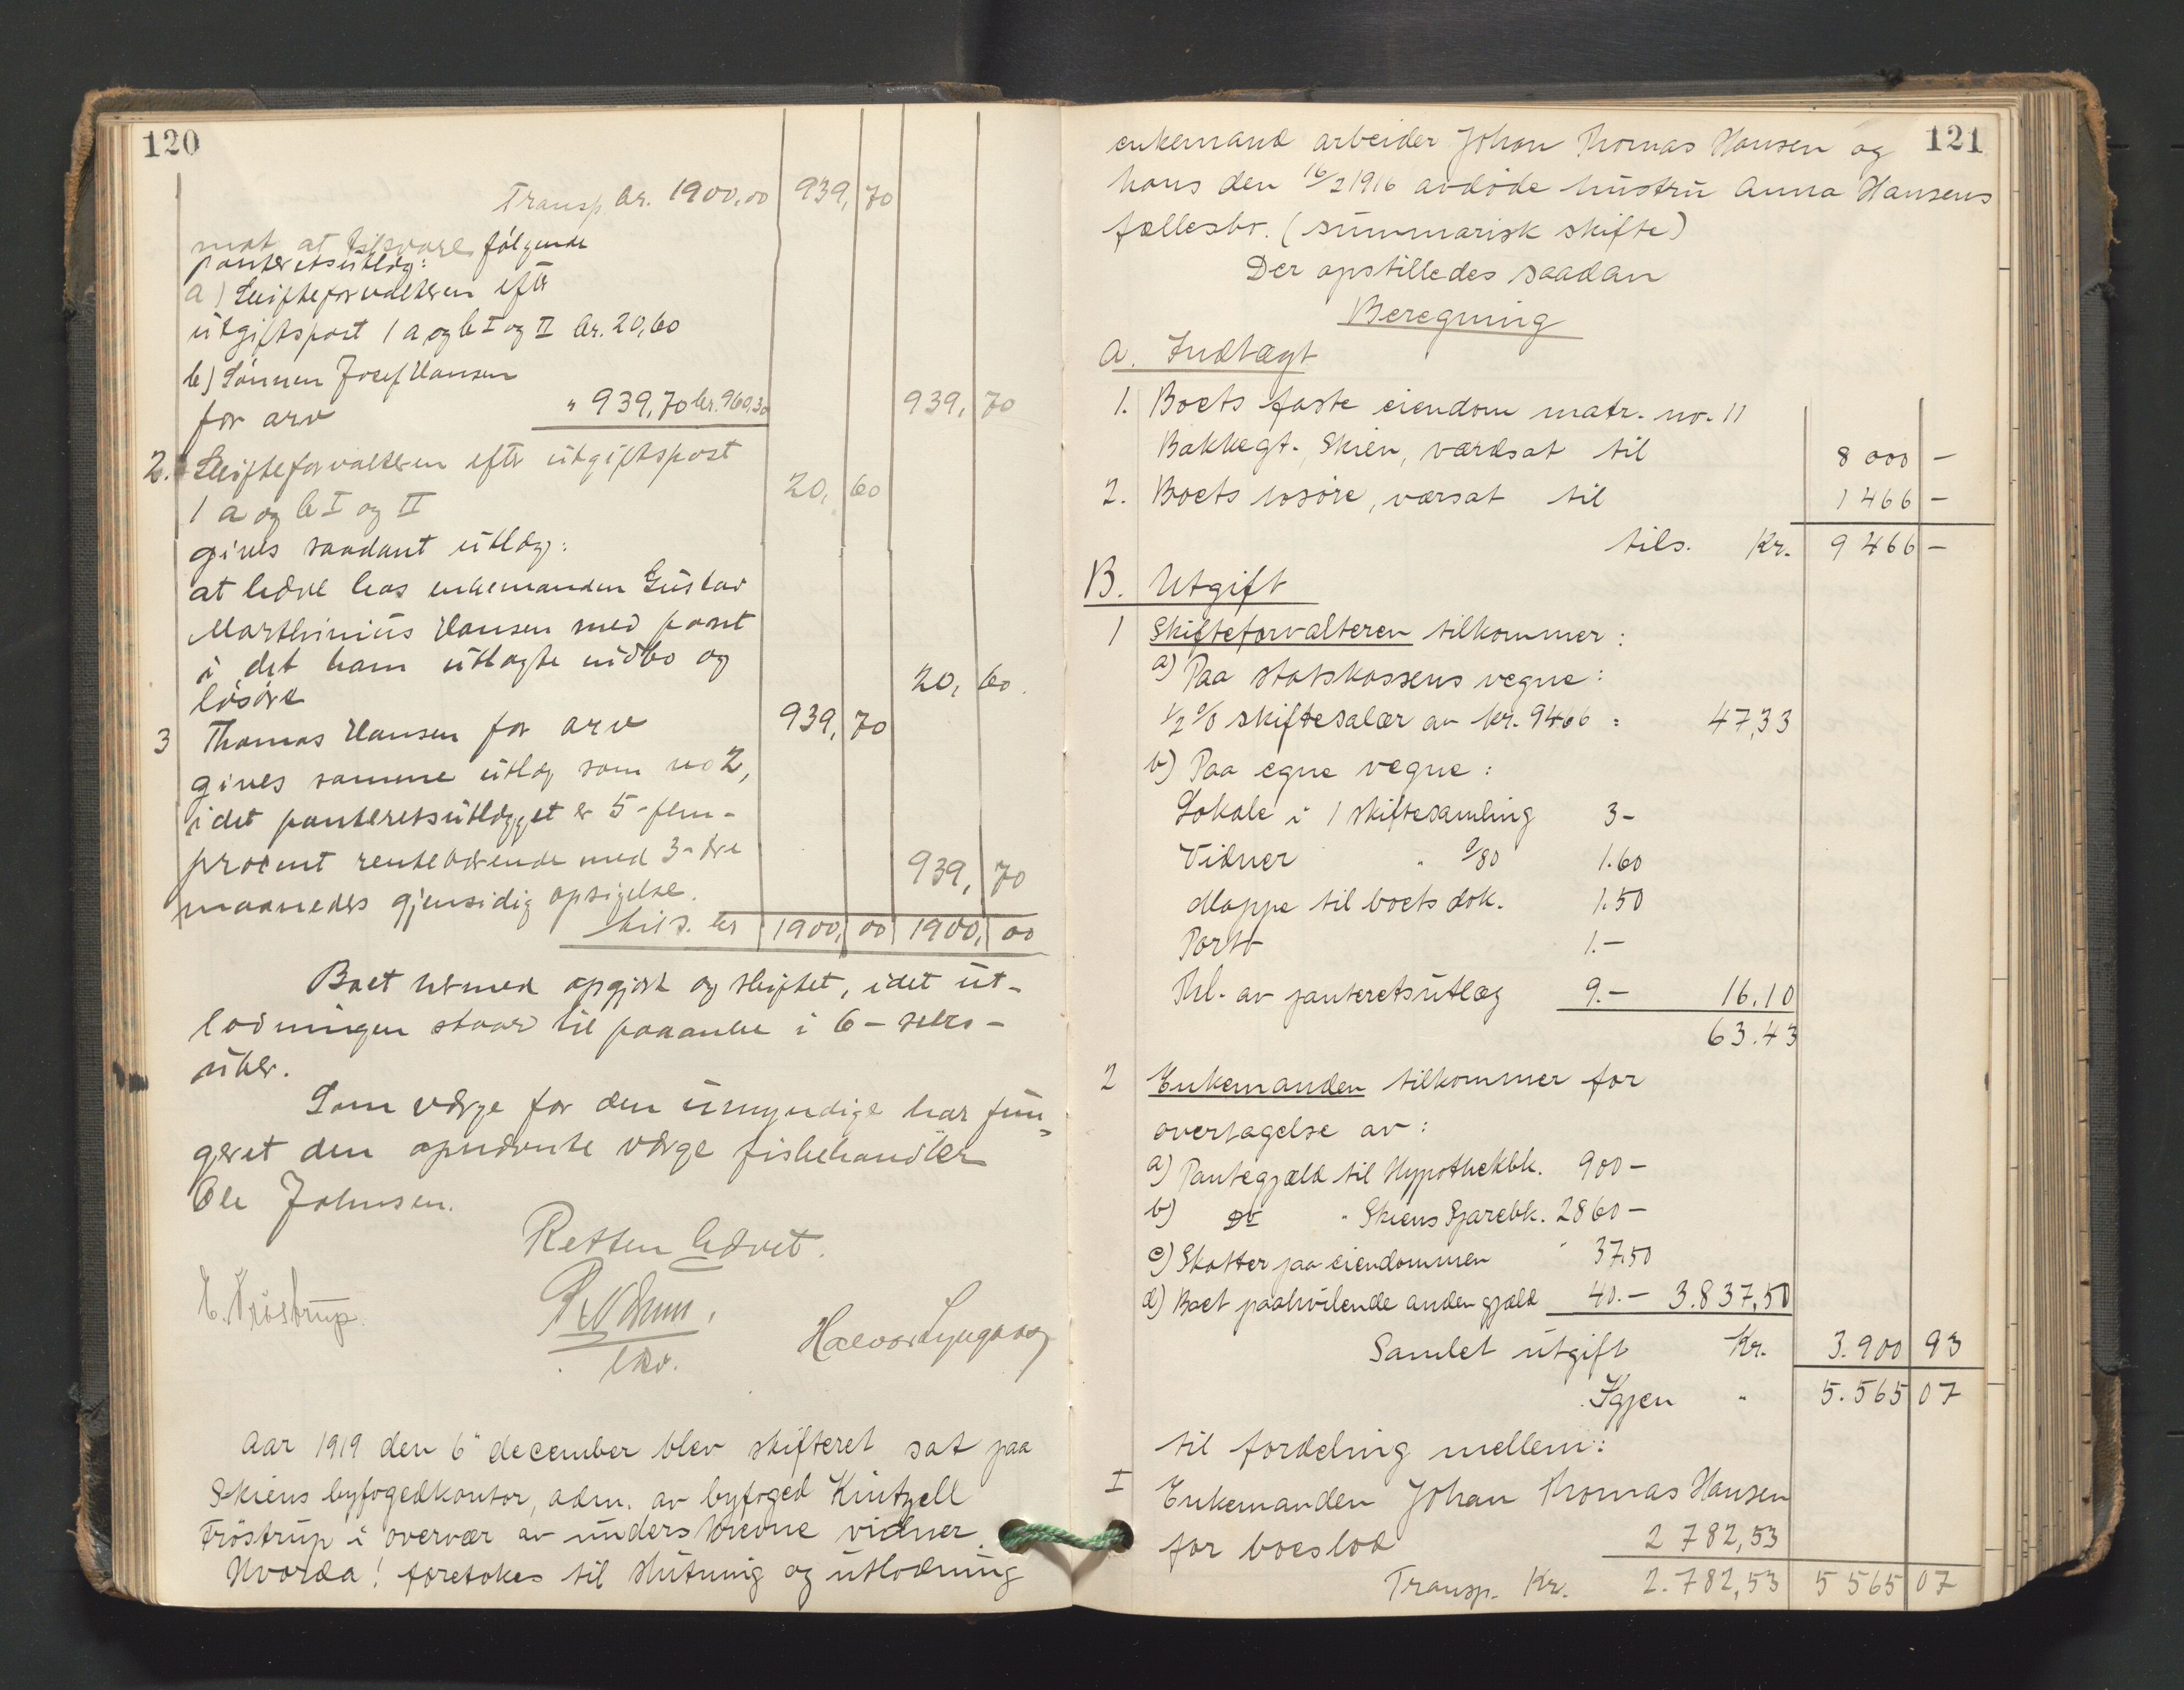 120
Transp. kr. 1900,00 939,70
mot at tilsvare følgende
panteretsutlæg:
a) Skifteforvalteren efter
utgiftspost 1 a og b I og II kr. 20,60
b) Sönnen Josef Hansen
for arv " 939,70 kr. 960,30 939,70
2. Skifteforvalteren efter utgiftspost
1 a og b I og II 20,60
gives saadant utlæg:
at hæve hos enkemanden Gustav
Marthinius Hansen med pant
i det ham utlagte indbo og
lösöre 20,60.
3 Thomas Hansen for arv 939,70
gives samme utlæg som no 2,
idet panteretsutlægget er 5-fem-
procent rentebærende med 3-tre
maaneders gjensidig opsigelse. 939,70
tils. kr 1900,00 1900,00
Boet hermed opgjort og skiftet, idet ut-
lodningen staar til paaanke i 6-seks-
uker.
Som værge for den umyndige har fun-
geret den opnævnte værge fiskehandler
Ole Johnsen.
Retten hævet.
E. Tröstrup.
Halvor Lyngaas
Aar 1919 den 6" december blev skifteret sat paa
Skiens byfogedkontor, adm. av byfoged Kintzell
Fröstrup i overvær av underskrevne vidner.
Hvorda! foretokes til slutning og utlodning
121
enkemand arbeider Johan Thomas Hansen og
hans den 16/2 1916 avdöde hustru Anna Hansens
fællesbo. (summarisk skifte)
Der opstilledes saadan
Beregning
A. Indtægt
1. Boets faste eiendom matr. no. 11
Bakkegt. Skien, værdsat til 8 000 –
2. Boets lösöre, værsat til 1 466 –
tils. Kr. 9 466 –
B. Utgift
1 Skifteforvalteren tilkommer:
a) Paa statskassens vegne:
1/2 % skiftesalær av kr. 9466 = 47,33
b) Paa egne vegne:
Lokale i 1 skiftesamling 3-
Vidner " a/80 1.60
Mappe til boets dok. 1.50
Porto 1.–
Thl. av panteretsutlæg 9.– 16.10
63.43
2 Enkemanden tilkommer for
overtagelse av:
a) Pantegjæld til Hypothekbk. 900 –
b) Do " Skiens Sparebk. 2860 –
c) Skatter paa eiendommen " 37.50
d) Boet paahvilende anden gjæld 40.– 3.837,50
Samlet utgift Kr. 3.900 93
Igjen " 5.565 07
til fordeling mellem:
I Enkemanden Johan Thomas Hansen
for boeslod 2 782,53
Transp. Kr. 2.782,53 5 565 07